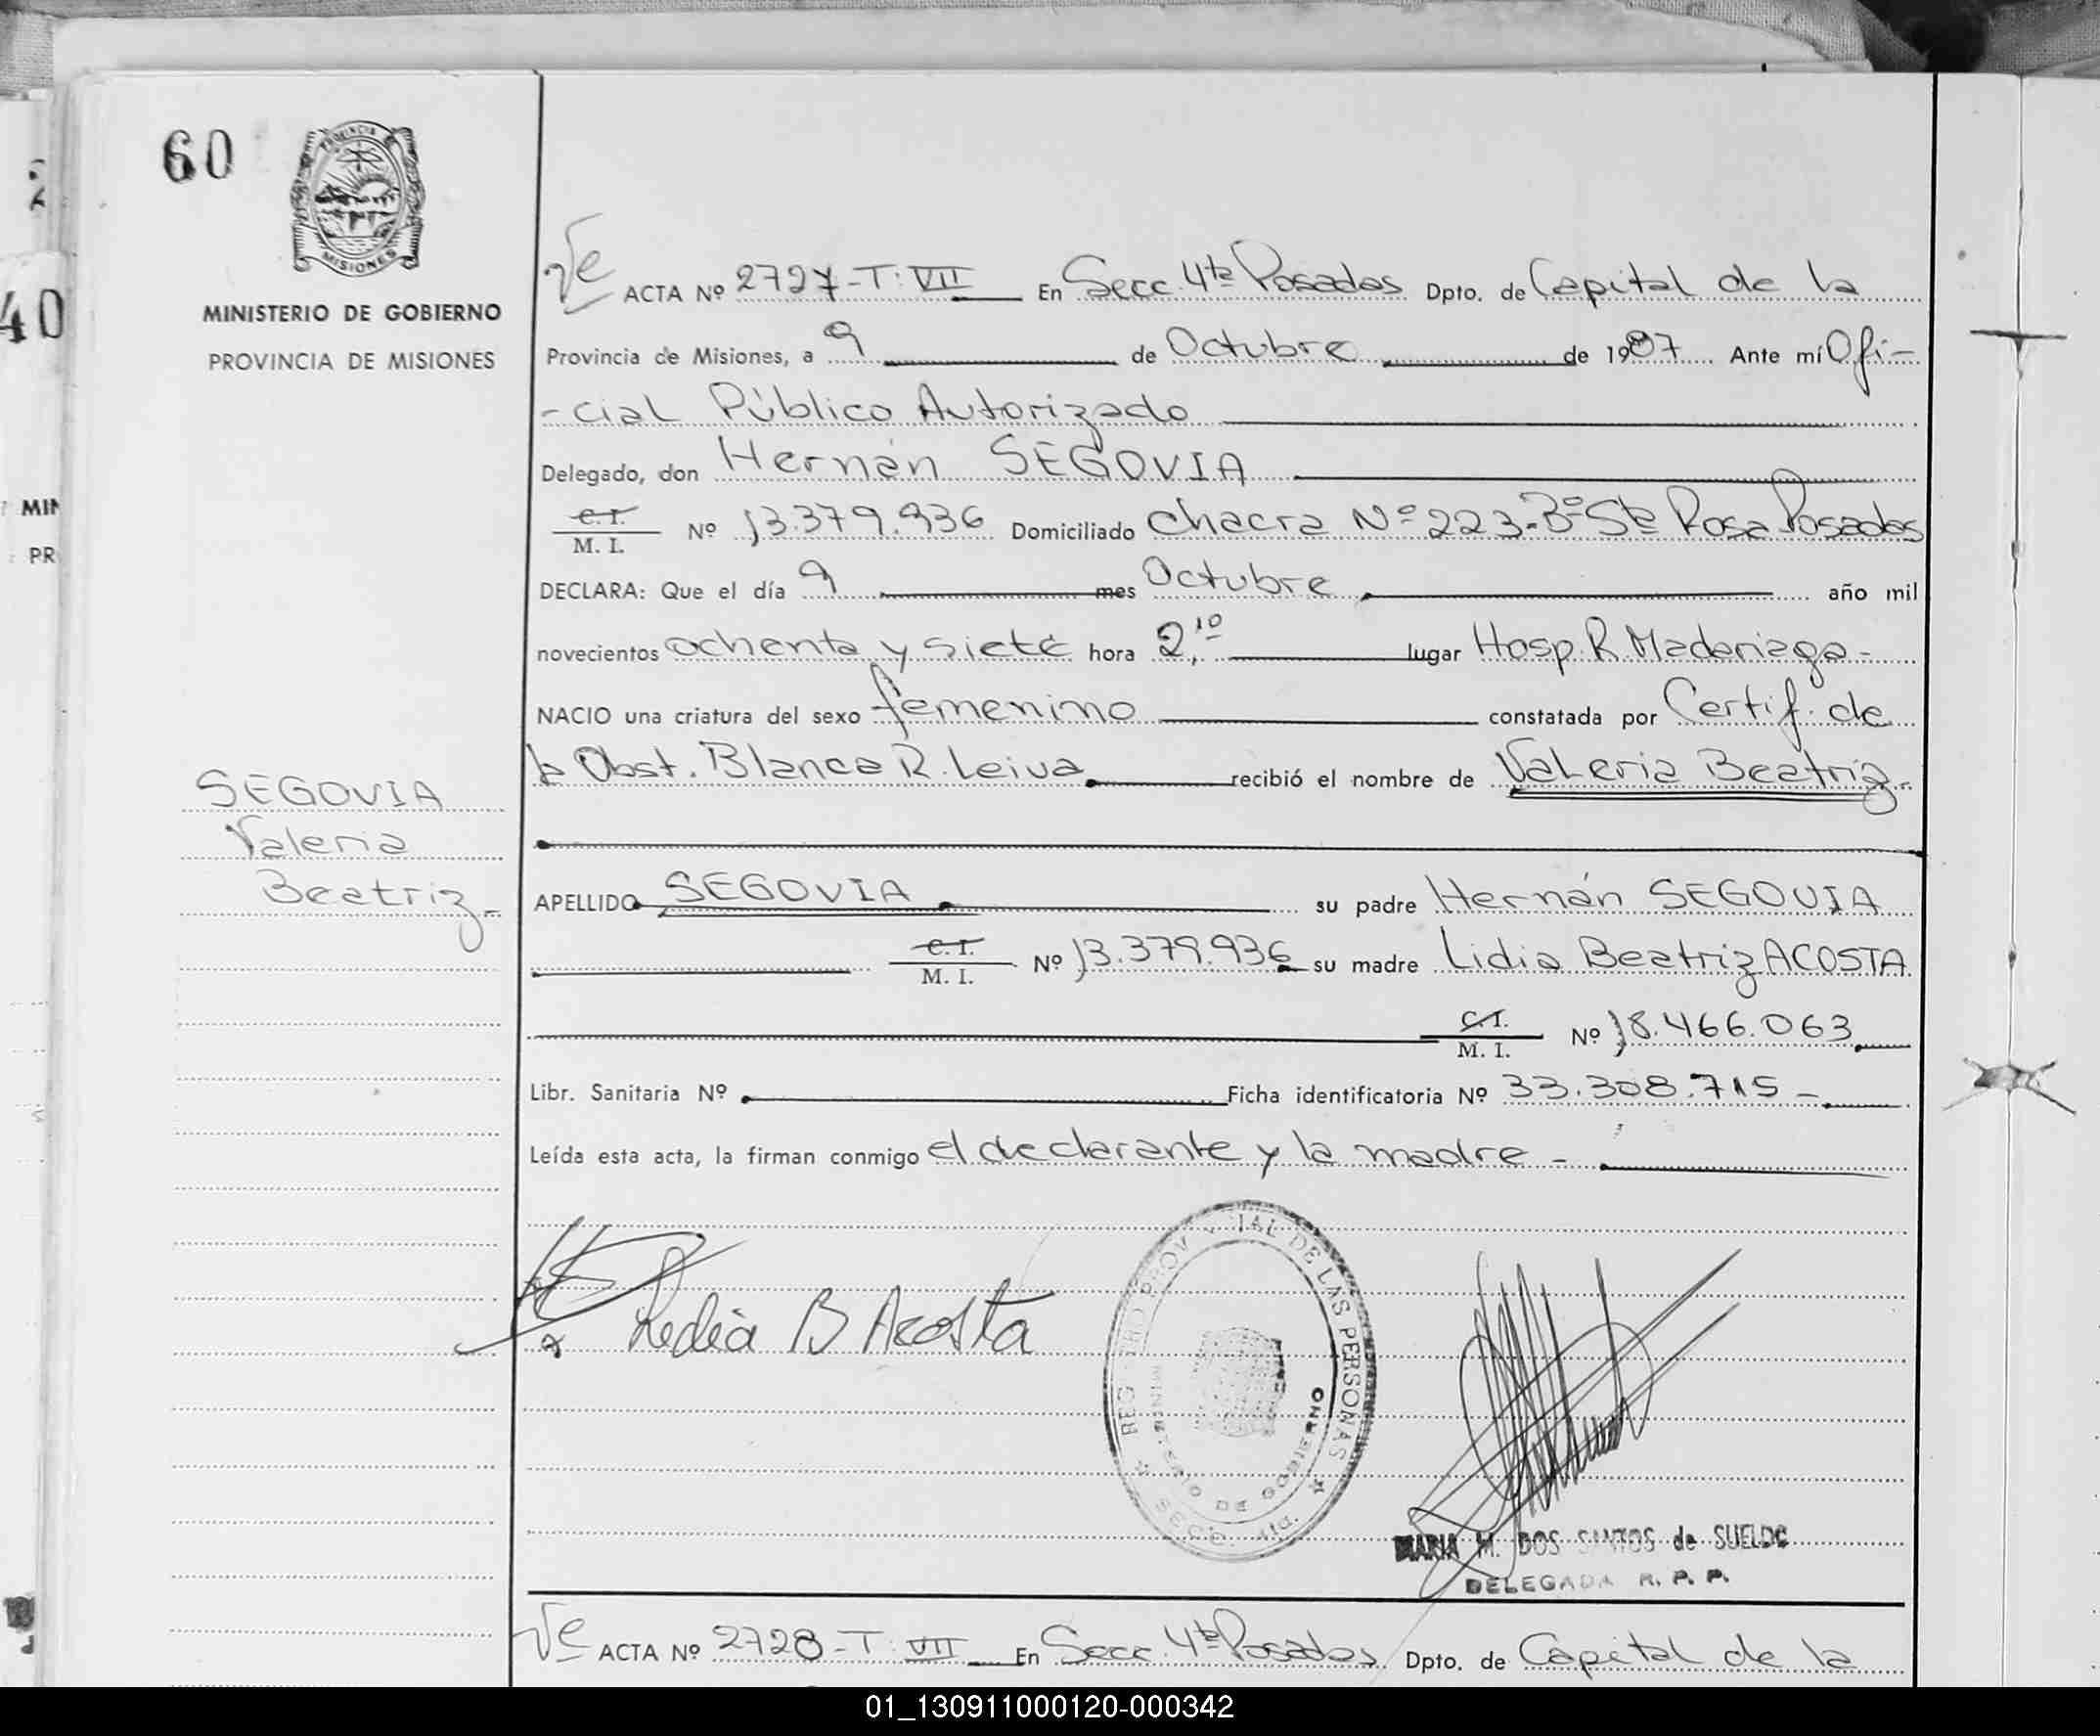 60
PROVINCIA
MISIONES
MINISTERIO DE GOBIERNO
PROVINCIA DE MISIONES
2
40
MIN
PR
Ve ACTA Nº 2727-T: VII En Secc. 4ta Posadas Dpto. de Capital de la
Provincia de Misiones, a 9 de Octubre de 1987 Ante mí Ofi-
-cial Público Autorizado
Delegado, don Hernán SEGOVIA
C.I.
M. I. Nº 13.379.936 Domiciliado Chacra Nº 223-Bº Sta Rosa Posadas
DECLARA: Que el día 9 mes Octubre año mil
novecientos ochenta y siete hora 2,10 lugar Hosp. R. Madariaga-
NACIO una criatura del sexo femenino constatada por Certif. de
la Obst. Blanca R. Leiva recibió el nombre de Valeria Beatriz-
SEGOVIA
Valeria
Beatriz-
APELLIDO SEGOVIA su padre Hernán SEGOVIA
C.I.
M. I. Nº 13.379.936 su madre Lidia Beatriz ACOSTA
C.I.
M. I. Nº 18.466.063
Libr. Sanitaria Nº Ficha identificatoria Nº 33.308.715-
Leída esta acta, la firman conmigo el declarante y la madre-
Lidia B Acosta
REGISTRO PROVINCIAL DE LAS PERSONAS
MINISTERIO DE GOBIERNO
SECC. 4ta.
MARIA M. DOS SANTOS de SUELDO
DELEGADA R. P. P.
Ve ACTA Nº 2728-T: VII En Secc. 4ta Posadas Dpto. de Capital de la
01_130911000120-000342